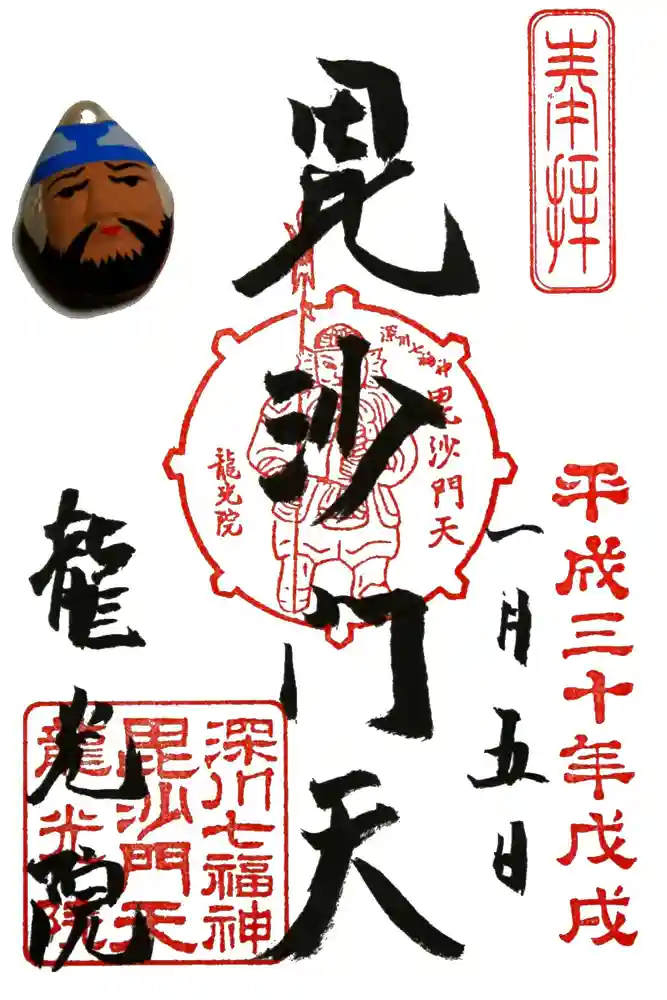 奉拝
平成三十年戊戌
一月五日
毘沙門天
深川七福神
毘沙門天
龍光院
龍光院
深川七福神
毘沙門天
龍光院